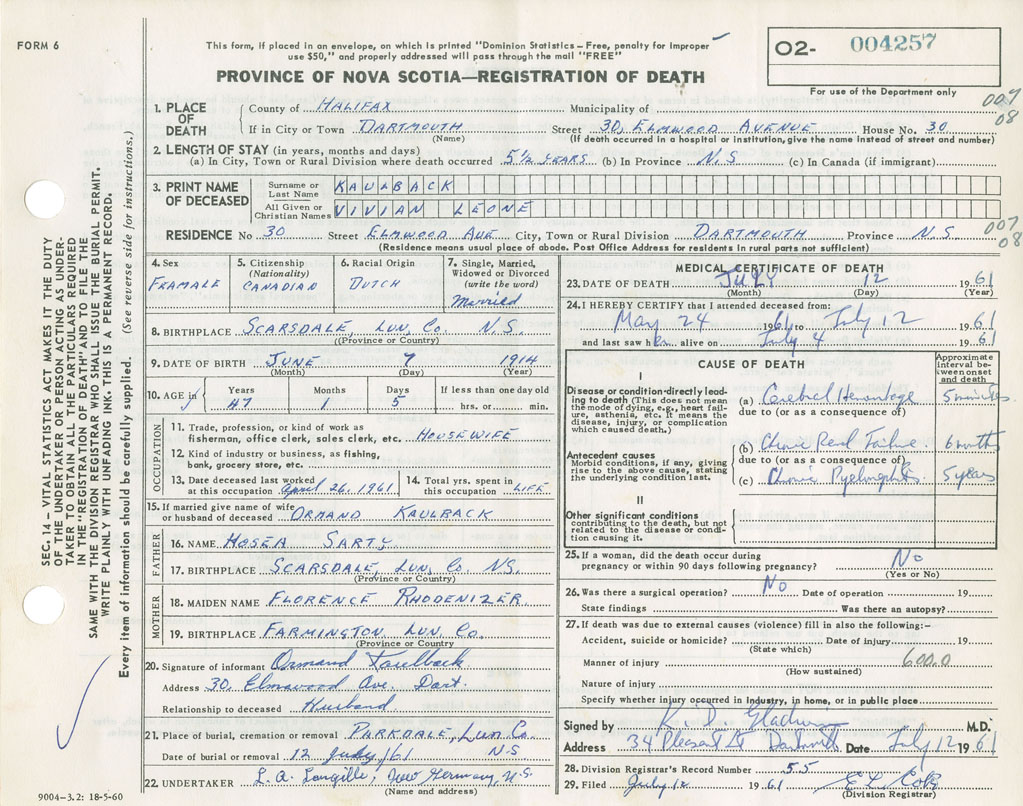 FORM 6
This form, if placed in an envelope, on which is printed "Dominion Statistics – Free, penalty for improper
use $50," and properly addressed will pass through the mail "FREE"
O2- 004257
For use of the Department only
PROVINCE OF NOVA SCOTIA—REGISTRATION OF DEATH
007
08
SEC. 14 – VITAL STATISTICS ACT MAKES IT THE DUTY
OF THE UNDERTAKER OR PERSON ACTING AS UNDER-
TAKER TO OBTAIN ALL THE PARTICULARS REQUIRED
IN THE "REGISTRATION OF DEATH" AND TO FILE THE
SAME WITH THE DIVISION REGISTRAR WHO SHALL ISSUE THE BURIAL PERMIT.
WRITE PLAINLY WITH UNFADING INK. THIS IS A PERMANENT RECORD.
Every item of information should be carefully supplied. (See reverse side for instructions.)
1. PLACE OF DEATH
County of HALIFAX Municipality of
If in City or Town DARTMOUTH Street 30, ELMWOOD AVENUE House No. 30
(Name) (If death occurred in a hospital or institution, give the name instead of street and number)
2. LENGTH OF STAY (in years, months and days)
(a) In City, Town or Rural Division where death occurred 5½ YEARS (b) In Province N.S (c) In Canada (if immigrant)
3. PRINT NAME OF DECEASED
Surname or Last Name KAULBACK
All Given or Christian Names VIVIAN LEONE
RESIDENCE No 30 Street ELMWOOD AVE City, Town or Rural Division DARTMOUTH Province N.S.
007
08
(Residence means usual place of abode. Post Office Address for residents in rural parts not sufficient)
4. Sex
FRAMALE
5. Citizenship
(Nationality)
CANADIAN
6. Racial Origin
DUTCH
7. Single, Married,
Widowed or Divorced
(write the word)
Married
8. BIRTHPLACE SCARSDALE, LUN, Co. N.S.
(Province or Country)
9. DATE OF BIRTH JUNE 7 1914
(Month) (Day) (Year)
10. AGE in
Years Months Days If less than one day old
47 1 5 hrs. or min.
OCCUPATION
11. Trade, profession, or kind of work as
fisherman, office clerk, sales clerk, etc. HOUSEWIFE
12. Kind of industry or business, as fishing,
bank, grocery store, etc.
13. Date deceased last worked
at this occupation April 26, 1961
14. Total yrs. spent in
this occupation LIFE
15. If married give name of wife
or husband of deceased ORMAND KAULBACK
FATHER
16. NAME HOSEA SARTY
17. BIRTHPLACE SCARSDALE, LUN. Co NS.
(Province or Country)
MOTHER
18. MAIDEN NAME FLORENCE RHODENIZER
19. BIRTHPLACE FARMINGTON LUN. Co.
(Province or Country
20. Signature of informant Ormand Kaulback
Address 30, Elmwood Ave. Dart.
Relationship to deceased Husband
21. Place of burial, cremation or removal PARKDALE, Lun. Co.
Date of burial or removal 12 July/61 NS
22. UNDERTAKER L. A. Langille, New Germany, N.S.
(Name and address)
9004–3.2: 18-5-60
MEDICAL CERTIFICATE OF DEATH
23. DATE OF DEATH JULY 12 1961
(Month) (Day) (Year)
24. I HEREBY CERTIFY that I attended deceased from:
May 24 1961 to July 12 1961
and last saw her alive on July 4 1961
CAUSE OF DEATH
Approximate
interval be-
tween onset
and death
I
Disease or condition directly lead-
ing to death (This does not mean
the mode of dying, e.g., heart fail-
ure, asthenia, etc. It means the
disease, injury, or complication
which caused death.)
(a) Cerebral Hemorrhage 5 minutes
due to (or as a consequence of)
Antecedent causes
Morbid conditions, if any, giving
rise to the above cause, stating
the underlying condition last.
(b) Chronic Renal Failure 6 months
due to (or as a consequence of)
(c) Chronic Pyelonephritis 5 years
II
Other significant conditions
contributing to the death, but not
related to the disease or condi-
tion causing it.
25. If a woman, did the death occur during
pregnancy or within 90 days following pregnancy? No
(Yes or No)
26. Was there a surgical operation? No Date of operation 19
State findings Was there an autopsy?
27. If death was due to external causes (violence) fill in also the following:–
Accident, suicide or homicide? Date of injury 19
(State which)
Manner of injury 600.0
(How sustained)
Nature of injury
Specify whether injury occurred in industry, in home, or in public place
Signed by K. D. M.D.
Address 34 Pleasant St Dartmouth Date July 12 1961
28. Division Registrar's Record Number 55
29. Filed July 12 1961
(Division Registrar)